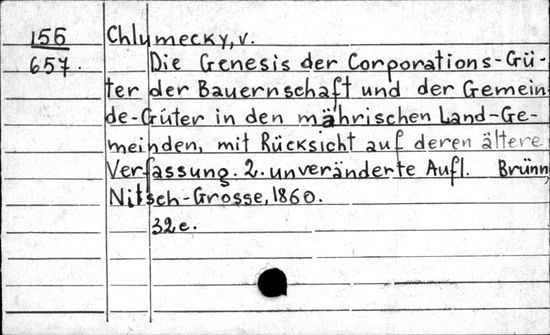 156 Chlumecky, v.
657. Die Genesis der Corporations-Gü-
ter der Bauernschaft und der Gemein
de-Güter in den mährischen Land-Ge-
meinden, mit Rücksicht auf deren ältere
Verfassung. 2. unveränderte Aufl. Brünn
Nitsch-Grosse, 1860.
32 e.